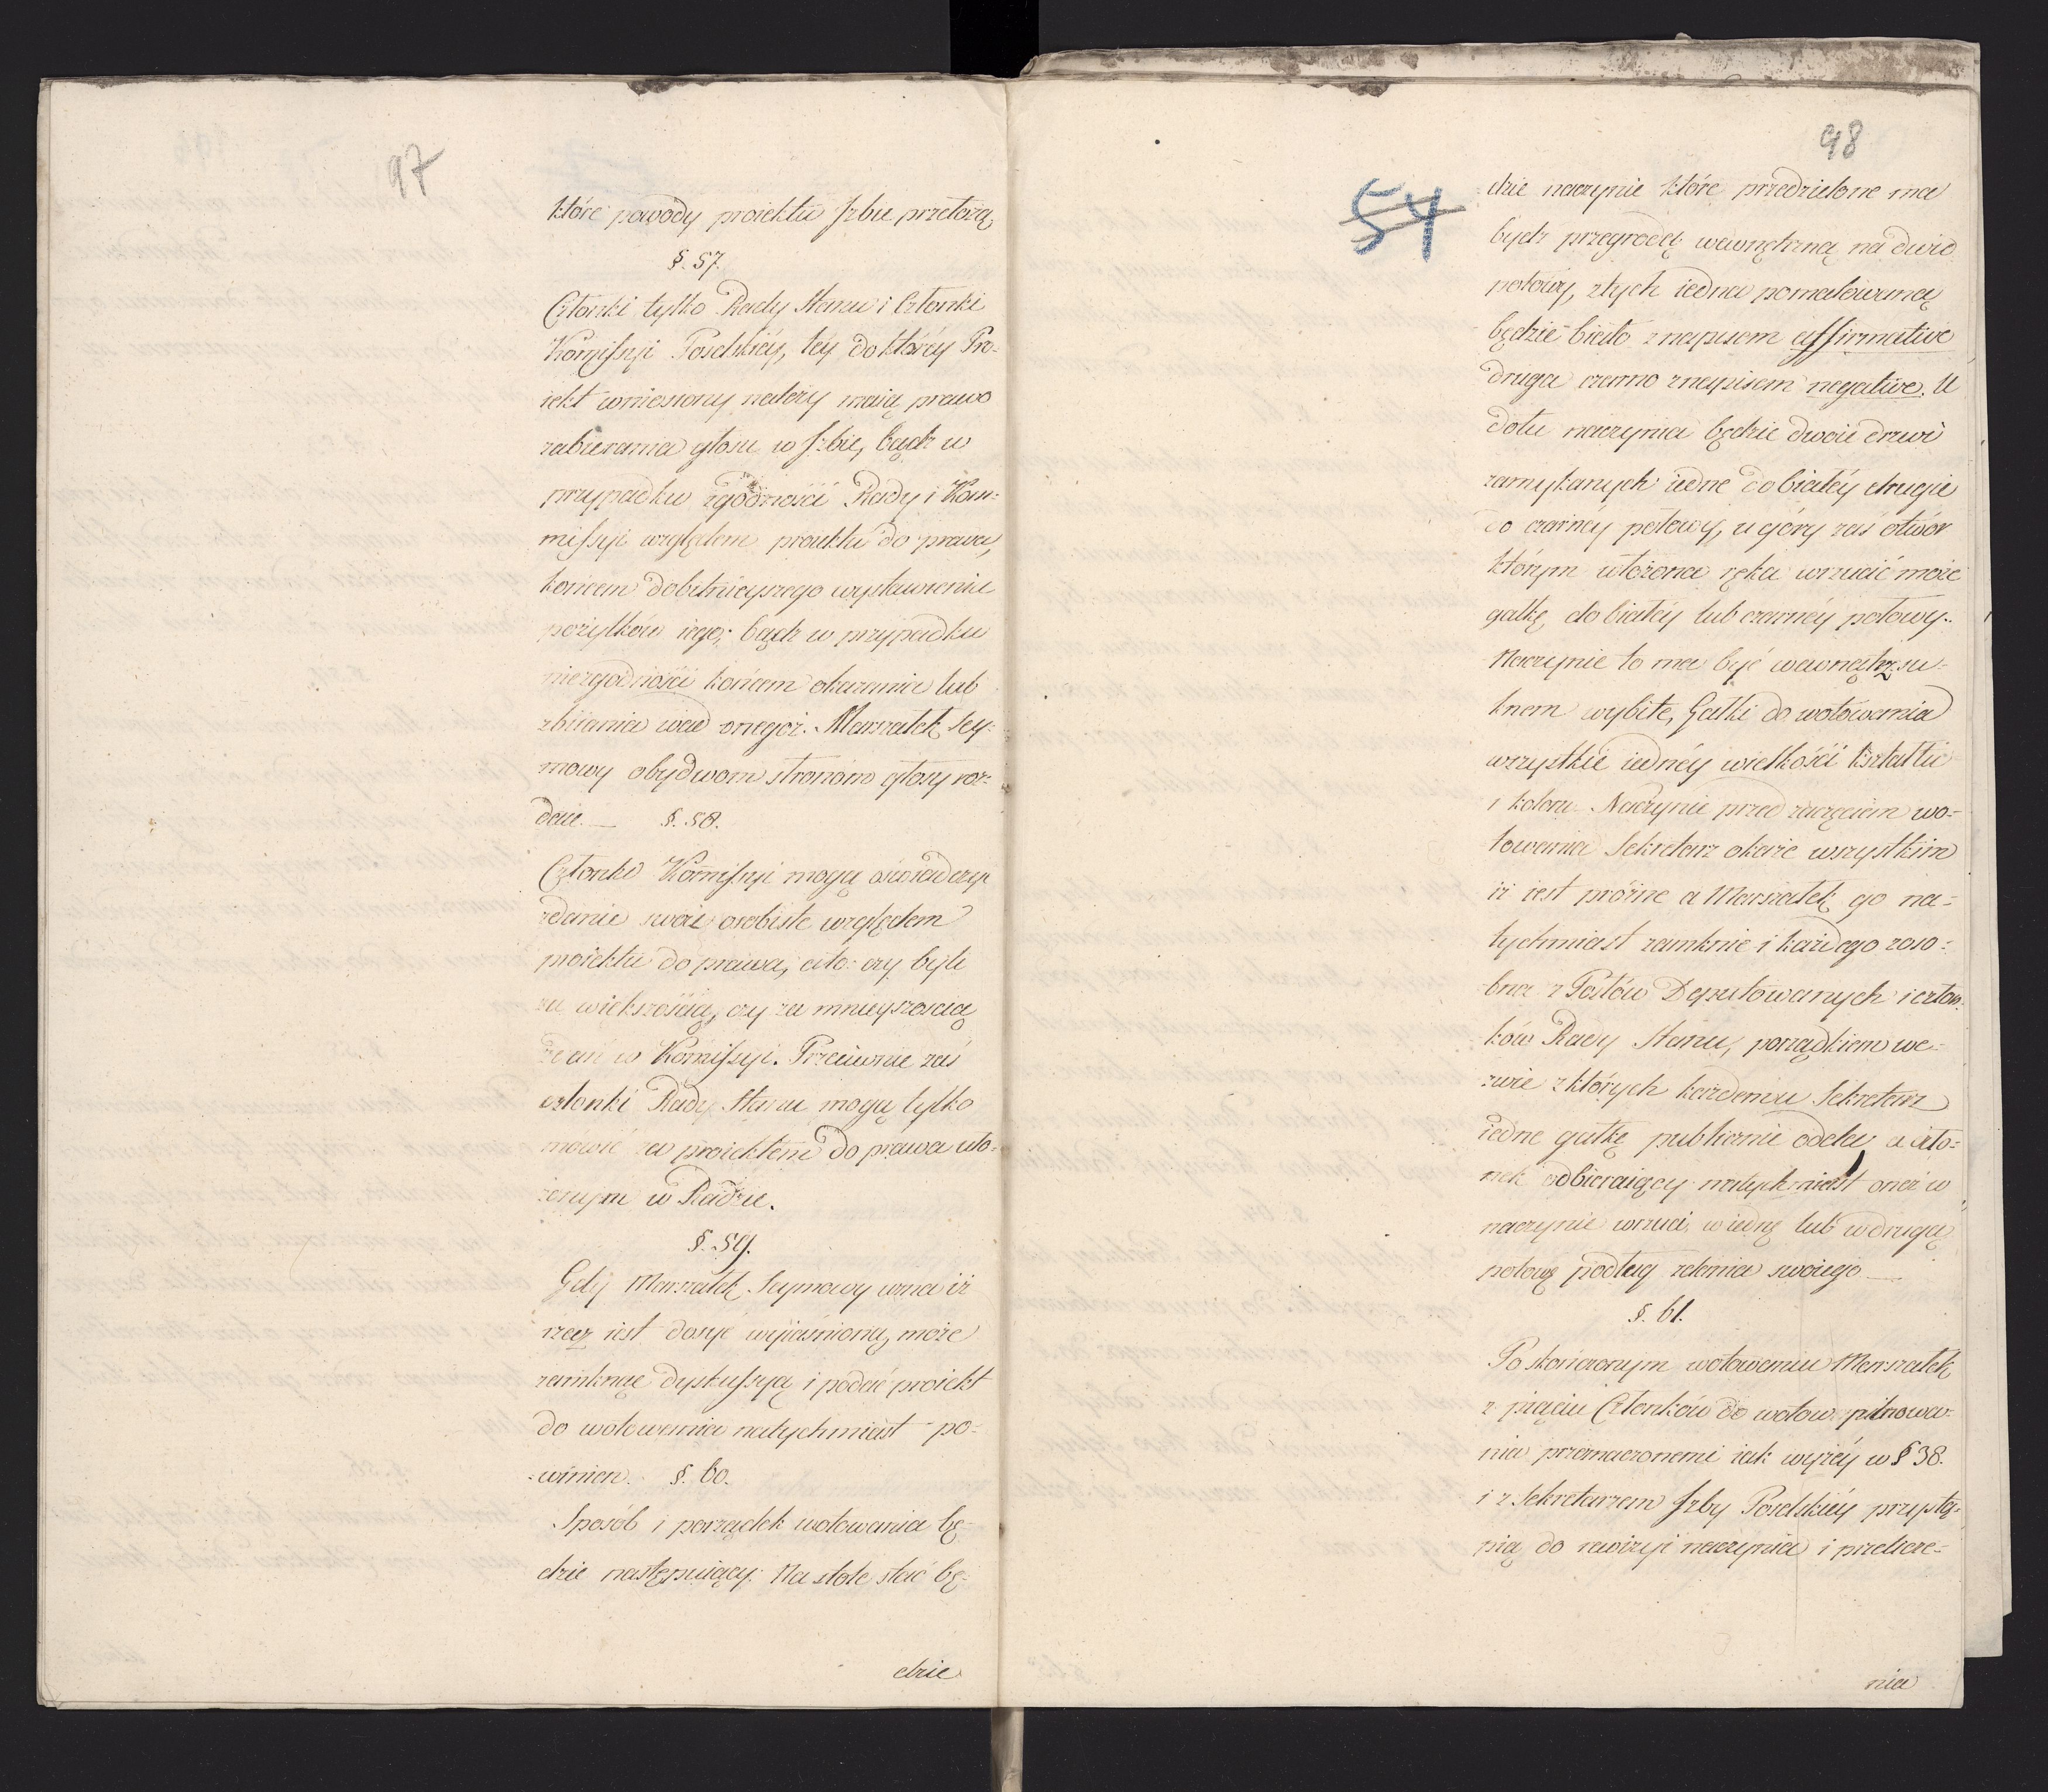 97
które powody proiektu Izbie przełożą.
§. 57.
Członki tylko Rady Stanu i Członki
Kommissyi Poselskiéy, téy do któréy Pro-
iekt wniesiony należy maią prawo
zabierania głosu w Izbie, bądź w
przypadku zgodności Rady i Kom-
missyi względem proiektu do prawa,
końcem dobitnieyszego wystawienia
pożytków iego; bądź w przypadku
niezgodności końcem okazania lub
zbiiania wad onegoż. Marszałek Sey-
mowy obydwom stronom głosy roz-
daie. — §. 58.
Członki Kommissyi mogą oświadczyć
zdanie swoie osobiste względem
proiektu do prawa, czyto: czy byli
za większością, czy za mnieyszością
zdań w Kommissyi. Przeciwnie zaś
członki Rady Stanu mogą tylko
mowić za proiektem do prawa uło-
żonym w Radzie.
§. 59.
Gdy Marszałek Seymowy uzna iż
rzecz iest dosyć wyiaśnioną, może
zamknąć dyskussyą i podać proiekt
do wotowania natychmiast po-
winien. §. 60.
Sposób i porządek wotowania bę-
dzie następuiący: Na stole stać bę-
dzie
98
54
dzie naczynie które przedzielone ma
bydź przegrodą wewnętrzną na dwie
połowy, z tych iedna pomalowaną
będzie biało z napisem affirmative
druga czarno z napisem negative. U
dołu naczynia będzie dwoie drzwi
zamykanych iedne do białéy drugie
do czarnéy połowy, u góry zaś otwór
którym włożona ręka wrzucić może
gałkę do białéy lub czarnéy połowy.
Naczynie to ma być wewnątrz su-
knem wybite, Gałki do wotowania
wszystkie iednéy wielkości kształtu
i koloru. Naczynie przed zaczęciem wo-
towania Sekretarz okaże wszystkim
iż iest próżne a Marszałek go na-
tychmiast zamknie i każdego zoso-
bna z Posłów Deputowanych i człon-
ków Rady Stanu, porządkiem we-
zwie z których każdemu Sekretarz
iedne gałkę publicznie odda, a czło-
nek odbieraiący natychmiast oneż w
naczynie wrzuci w iedną lub w drugą
połowę podług zdania swoiego —
§. 61.
Po skończonym wotowaniu Marszałek
z pięciu Członków do wotow. pilnowa-
nia przeznaczonemi iak wyżéy w § 38.
i z Sekretarzem Izby Poselskiéy przystą-
pią do rewizyi naczynia i przelicze-
nia